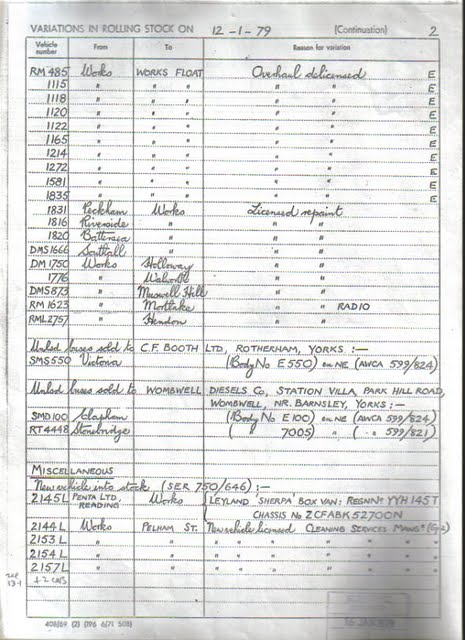 VARIATIONS IN ROLLING STOCK ON 12-1-79 (Continuation) 2
Vehicle number From To Reason for variation
RM 485 Works WORKS FLOAT Overhaul delicensed E
1115 " " " " " E
1118 " " " " " E
1120 " " " " " E
1122 " " " " " E
1165 " " " " " E
1214 " " " " " E
1272 " " " " " E
1581 " " " " " E
1835 " " " " " E
1831 Peckham Works Licensed repaint
1816 Riverside " " "
1820 Battersea " " "
DMS1666 Southall " " "
DM 1750 Works Holloway " "
1776 " Walworth " "
DMS873 " Muswell Hill " "
RM 1623 " Mortlake " " RADIO
RML2757 " Hendon " "
Unlsd buses sold to C.F. BOOTH LTD, ROTHERHAM, YORKS :—
SMS550 Victoria (Body No E550) on NE (AWCA 599/824)
Unlsd buses sold to WOMBWELL DIESELS Co, STATION VILLA, PARK HILL ROAD,
WOMBWELL, NR. BARNSLEY, YORKS :—
SMD100 Clapham (Body No E100) on NE (AWCA 599/824)
RT4448 Stonebridge ( " 7005 ) " ( " 599/821)
MISCELLANEOUS
New vehicle into stock (SER 750/646) :—
2145L PENTA LTD, READING Works LEYLAND SHERPA BOX VAN: REGN No YYH 145T
CHASSIS No ZCFABK52700N
2144L Works PELHAM ST. New vehicle licensed CLEANING SERVICES
2153L " " " " " " "
2154L " " " " " " "
2157L " " " " " " "
13-1
408/69 (2) (796 6/71 50B)